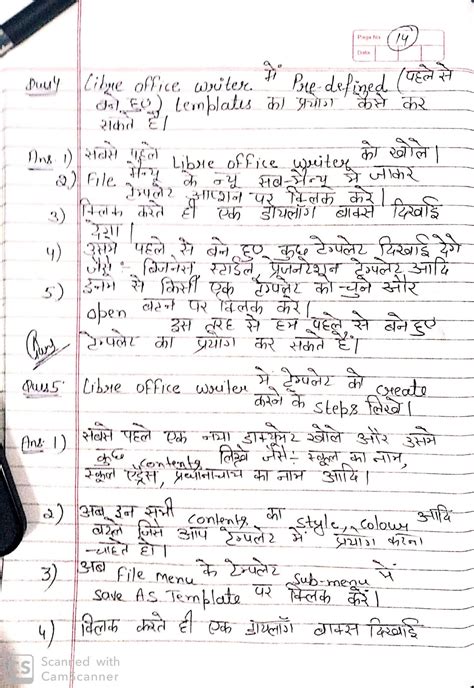 Page No. 14
Date
Ques4 Libre office writer में Pre-defined (पहले से
बने हुए) templates का प्रयोग कैसे कर
सकते हैं।
Ans. 1) सबसे पहले Libre office writer को खोले।
2) File मैन्यू के न्यू सब-मैन्यू में जाकर
टेम्पलेट आप्शन पर क्लिक करें।
3) क्लिक करते ही एक डायलॉग बाक्स दिखाई
देगा।
4) उसमें पहले से बने हुए कुछ टेम्पलेट दिखाई देंगे
जैसे:- बिजनेस स्टाईल, प्रजन्टेशन टेम्पलेट आदि
5) इनमें से किसी एक टेम्पलेट को चुने और
open बटन पर क्लिक करें।
इस तरह से हम पहले से बने हुए
टेम्पलेट का प्रयोग कर सकते हैं।
Ques5. Libre office writer में टेम्पलेट को create
करने के steps लिखे।
Ans. 1) सबसे पहले एक नया डाक्यूमेंट खोले और उसमें
कुछ contents लिखे जैसे:- स्कूल का नाम,
स्कूल एड्रेस, प्रधानाचार्य का नाम आदि।
2) अब इन सभी contents का style, colour आदि
बदले जिसे आप टेम्पलेट में प्रयोग करना
चाहते हो।
3) अब File menu के टेम्पलेट sub-menu में
save As Template पर क्लिक करें।
4) क्लिक करते ही एक डायलॉग बाक्स दिखाई
CS Scanned with
CamScanner